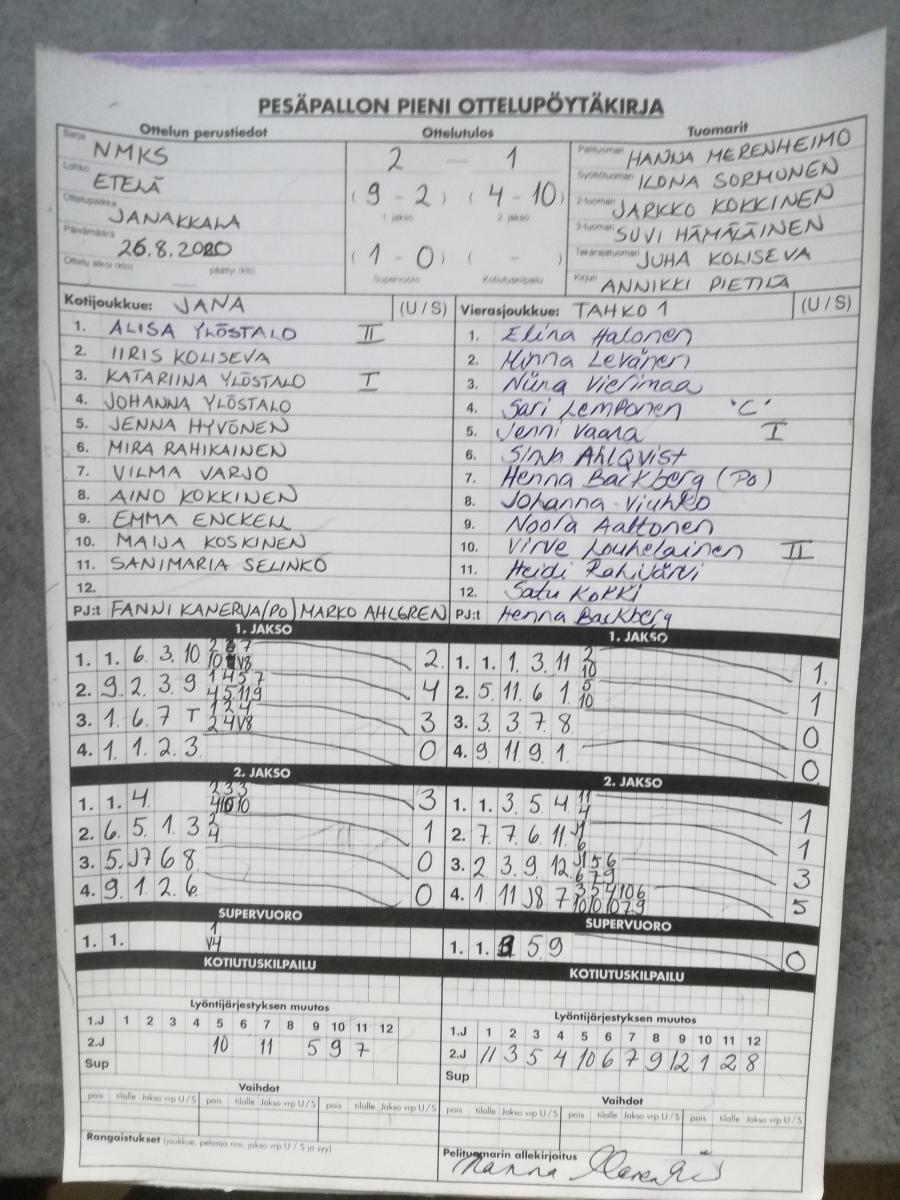 PESÄPALLON PIENI OTTELUPÖYTÄKIRJA
Ottelun perustiedot Ottelutulos Tuomarit
Sarja NMKS
Lohko ETELÄ
Ottelupaikka JANAKKALA
Päivämäärä 26.8.2020
Ottelu alkoi (klo) päättyi (klo)
2 — 1
(9 - 2) (4 - 10)
1 jakso 2 jakso
(1 - 0) ( - )
Supervuoro Kotiutuskilpailu
Pelituomari HANNA MERENHEIMO
Syöttötuomari ILONA SORMUNEN
2-tuomari JARKKO KOKKINEN
3-tuomari SUVI HÄMÄLÄINEN
Takarajatuomari JUHA KOLISEVA
Kirjuri ANNIKKI PIETILÄ
Kotijoukkue: JANA (U/S)
1. ALISA YLÖSTALO II
2. IIRIS KOLISEVA
3. KATARIINA YLÖSTALO I
4. JOHANNA YLÖSTALO
5. JENNA HYVÖNEN
6. MIRA RAHIKAINEN
7. VILMA VARJO
8. AINO KOKKINEN
9. EMMA ENCKELL
10. MAIJA KOSKINEN
11. SANIMARIA SELINKO
12.
PJ:t FANNI KANERVA(PO) MARKO AHLGREN
Vierasjoukkue: TAHKO 1 (U/S)
1. Elina Halonen
2. Minna Levänen
3. Niina Vierimaa
4. Sari Lemponen "C"
5. Jenni Vaara I
6. Sinh Ahlqvist
7. Henna Backberg (Po)
8. Johanna Viuhko
9. Noora Aaltonen
10. Virve Louhelainen II
11. Heidi Rahijärvi
12. Satu Kokki
PJ:t Henna Backberg
1. JAKSO
1. 1. 6. 3. 10 2
2. 9. 2. 3. 9 1 4 5 7 4 5 11 9 4
3. 1. 6. 7 T 1 2 4 2 4 V8 3
4. 1. 1. 2. 3. 0
1. JAKSO
1. 1. 1. 3. 11 2 10 1
2. 5. 11. 6 1. 5 10 1
3. 3. 3 7 8. 0
4. 9 11 9 1. 0
2. JAKSO
1. 1. 4. 2 3 3 3
2. 6. 5. 1. 3 2 4 1
3. 5. J7 6 8. 0
4. 9. 1. 2. 6. 0
2. JAKSO
1. 1. 3. 5 4 11 4 1
2. 7. 7 6. 11. J1 6 1
3. 2 3. 9. 12. J1 5 6 6 7 9 3
4. 1 11 J8 7 3 5 4 10 6 10 10 10 7 9 5
SUPERVUORO
1. 1. 1 V4
SUPERVUORO
1. 1. 5 9 0
KOTIUTUSKILPAILU
KOTIUTUSKILPAILU
Lyöntijärjestyksen muutos
1.J 1 2 3 4 5 6 7 8 9 10 11 12
2.J 10 11 5 9 7
Sup
Lyöntijärjestyksen muutos
1.J 1 2 3 4 5 6 7 8 9 10 11 12
2.J 11 3 5 4 10 6 7 9 12 1 2 8
Sup
Vaihdot
pois tilalle Jakso vrp U/S pois tilalle Jakso vrp U/S pois tilalle Jakso vrp U/S
Vaihdot
pois tilalle Jakso vrp U/S pois tilalle Jakso vrp U/S pois tilalle Jakso vrp U/S
Rangaistukset (joukkue, pelaaja nro, jakso vrp U / S ja syy)
Pelituomarin allekirjoitus
Hanna